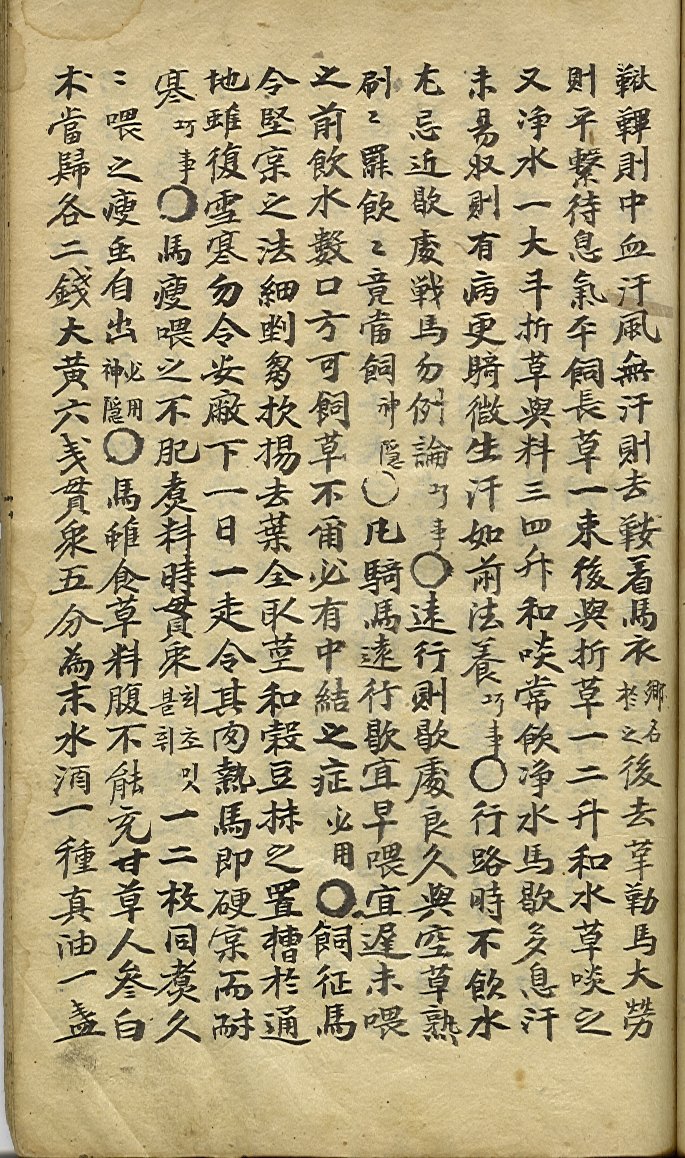 鞦韂則中血汗風無汗則去鞍着馬衣鄕名於之後去羊勒馬大勞
則平繫待息氣平飼長草一束後與折草一二升和水草啖之
又净水一大斗折草與料三四升和啖常飮净水馬歇多息汗
未易収則有病更騎微生汗如前法養巧事○行路時不飮水
尤忌近歇處戰馬勿例論巧事○遠行則歇處良久與空草熟
刷〻罷飮〻竟當飼神隱○凡騎馬遠行歇宜早喂宜遲未喂
之前飮水數口方可飼草不爾必有中結之症必用○飼征馬
令堅宲之法細剉芻杴揚去葉全取莖和糓豆秣之置槽於通
地雖復雪寒勿令安廠下一日一走令其肉熱馬即硬宲而耐
寒巧事○馬瘦喂之不肥煮料時貫眾회초밋불휘一二枚同煑久
〻喂之瘦虫自出神隱必用○馬雖食草料腹不能充甘草人參白
朮當歸各二錢大黃六戔貫眾五分為末水酒一種真油一盞